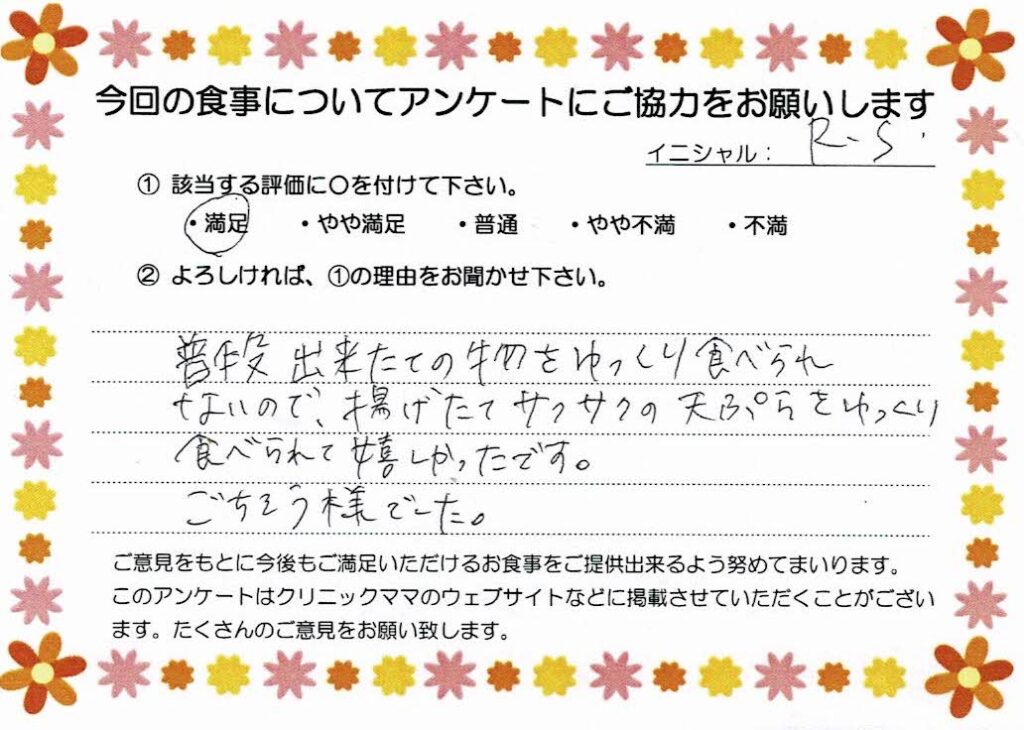 今回の食事についてアンケートにご協力をお願いします
イニシャル： R.S.
① 該当する評価に〇を付けて下さい。
・満足 ・やや満足 ・普通 ・やや不満 ・不満
② よろしければ、①の理由をお聞かせ下さい。
普段 出来たての物をゆっくり食べられ
ないので、揚げたてサクサクの天ぷらをゆっくり
食べられて嬉しかったです。
ごちそう様でした。
ご意見をもとに今後もご満足いただけるお食事をご提供出来るよう努めてまいります。
このアンケートはクリニックママのウェブサイトなどに掲載させていただくことがござい
ます。たくさんのご意見をお願い致します。